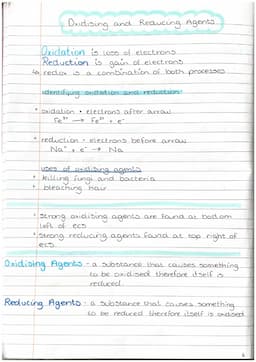 Oxidising and Reducing Agents
Oxidation is loss of electrons
Reduction is gain of electrons
↳ redox is a combination of both processes
identifying oxidation and reduction
• oxidation - electrons after arrow
→ Fe³⁺ + e⁻
• reduction - electrons before arrow
Na⁺ + e⁻ → Na
uses of oxidising agents
• killing fungi and bacteria
• bleaching hair
• strong oxidising agents are found at bottom
left of ecs
• strong reducing agents found at top right of
ecs
Oxidising Agents - a substance that causes something
to be oxidised therefore itself is
reduced.
Reducing Agents - a substance that causes something
to be reduced therefore itself is oxidised